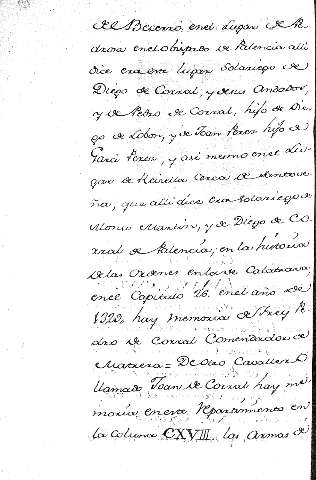 de Becerro, en el Lugar de Pe
drosa en el obispado de Palencia alli
dice era este lugar Solariego de
Diego de Corral, y de sus
y de Pedro de Corral, hijo de Die
go de Lobon, y de Joan Peres hijo de
Garci Peres, y asi mesmo en el Lu
gar de Revilla cerca de
ña, que alli dice era solariego de
Alonso Martin, y de Diego de Co
rral de Palencia; en la historia
de las Ordenes en la de Calatrava,
en el Capitulo 26. en el año de
1329, hay memoria de Frey Pe
dro de Corral Comendador de
Matrera = De otro Cavallero
llamado Joan de Corral hay me
moria en este Repartimiento en
la Coluna CXVIII. las Armas de